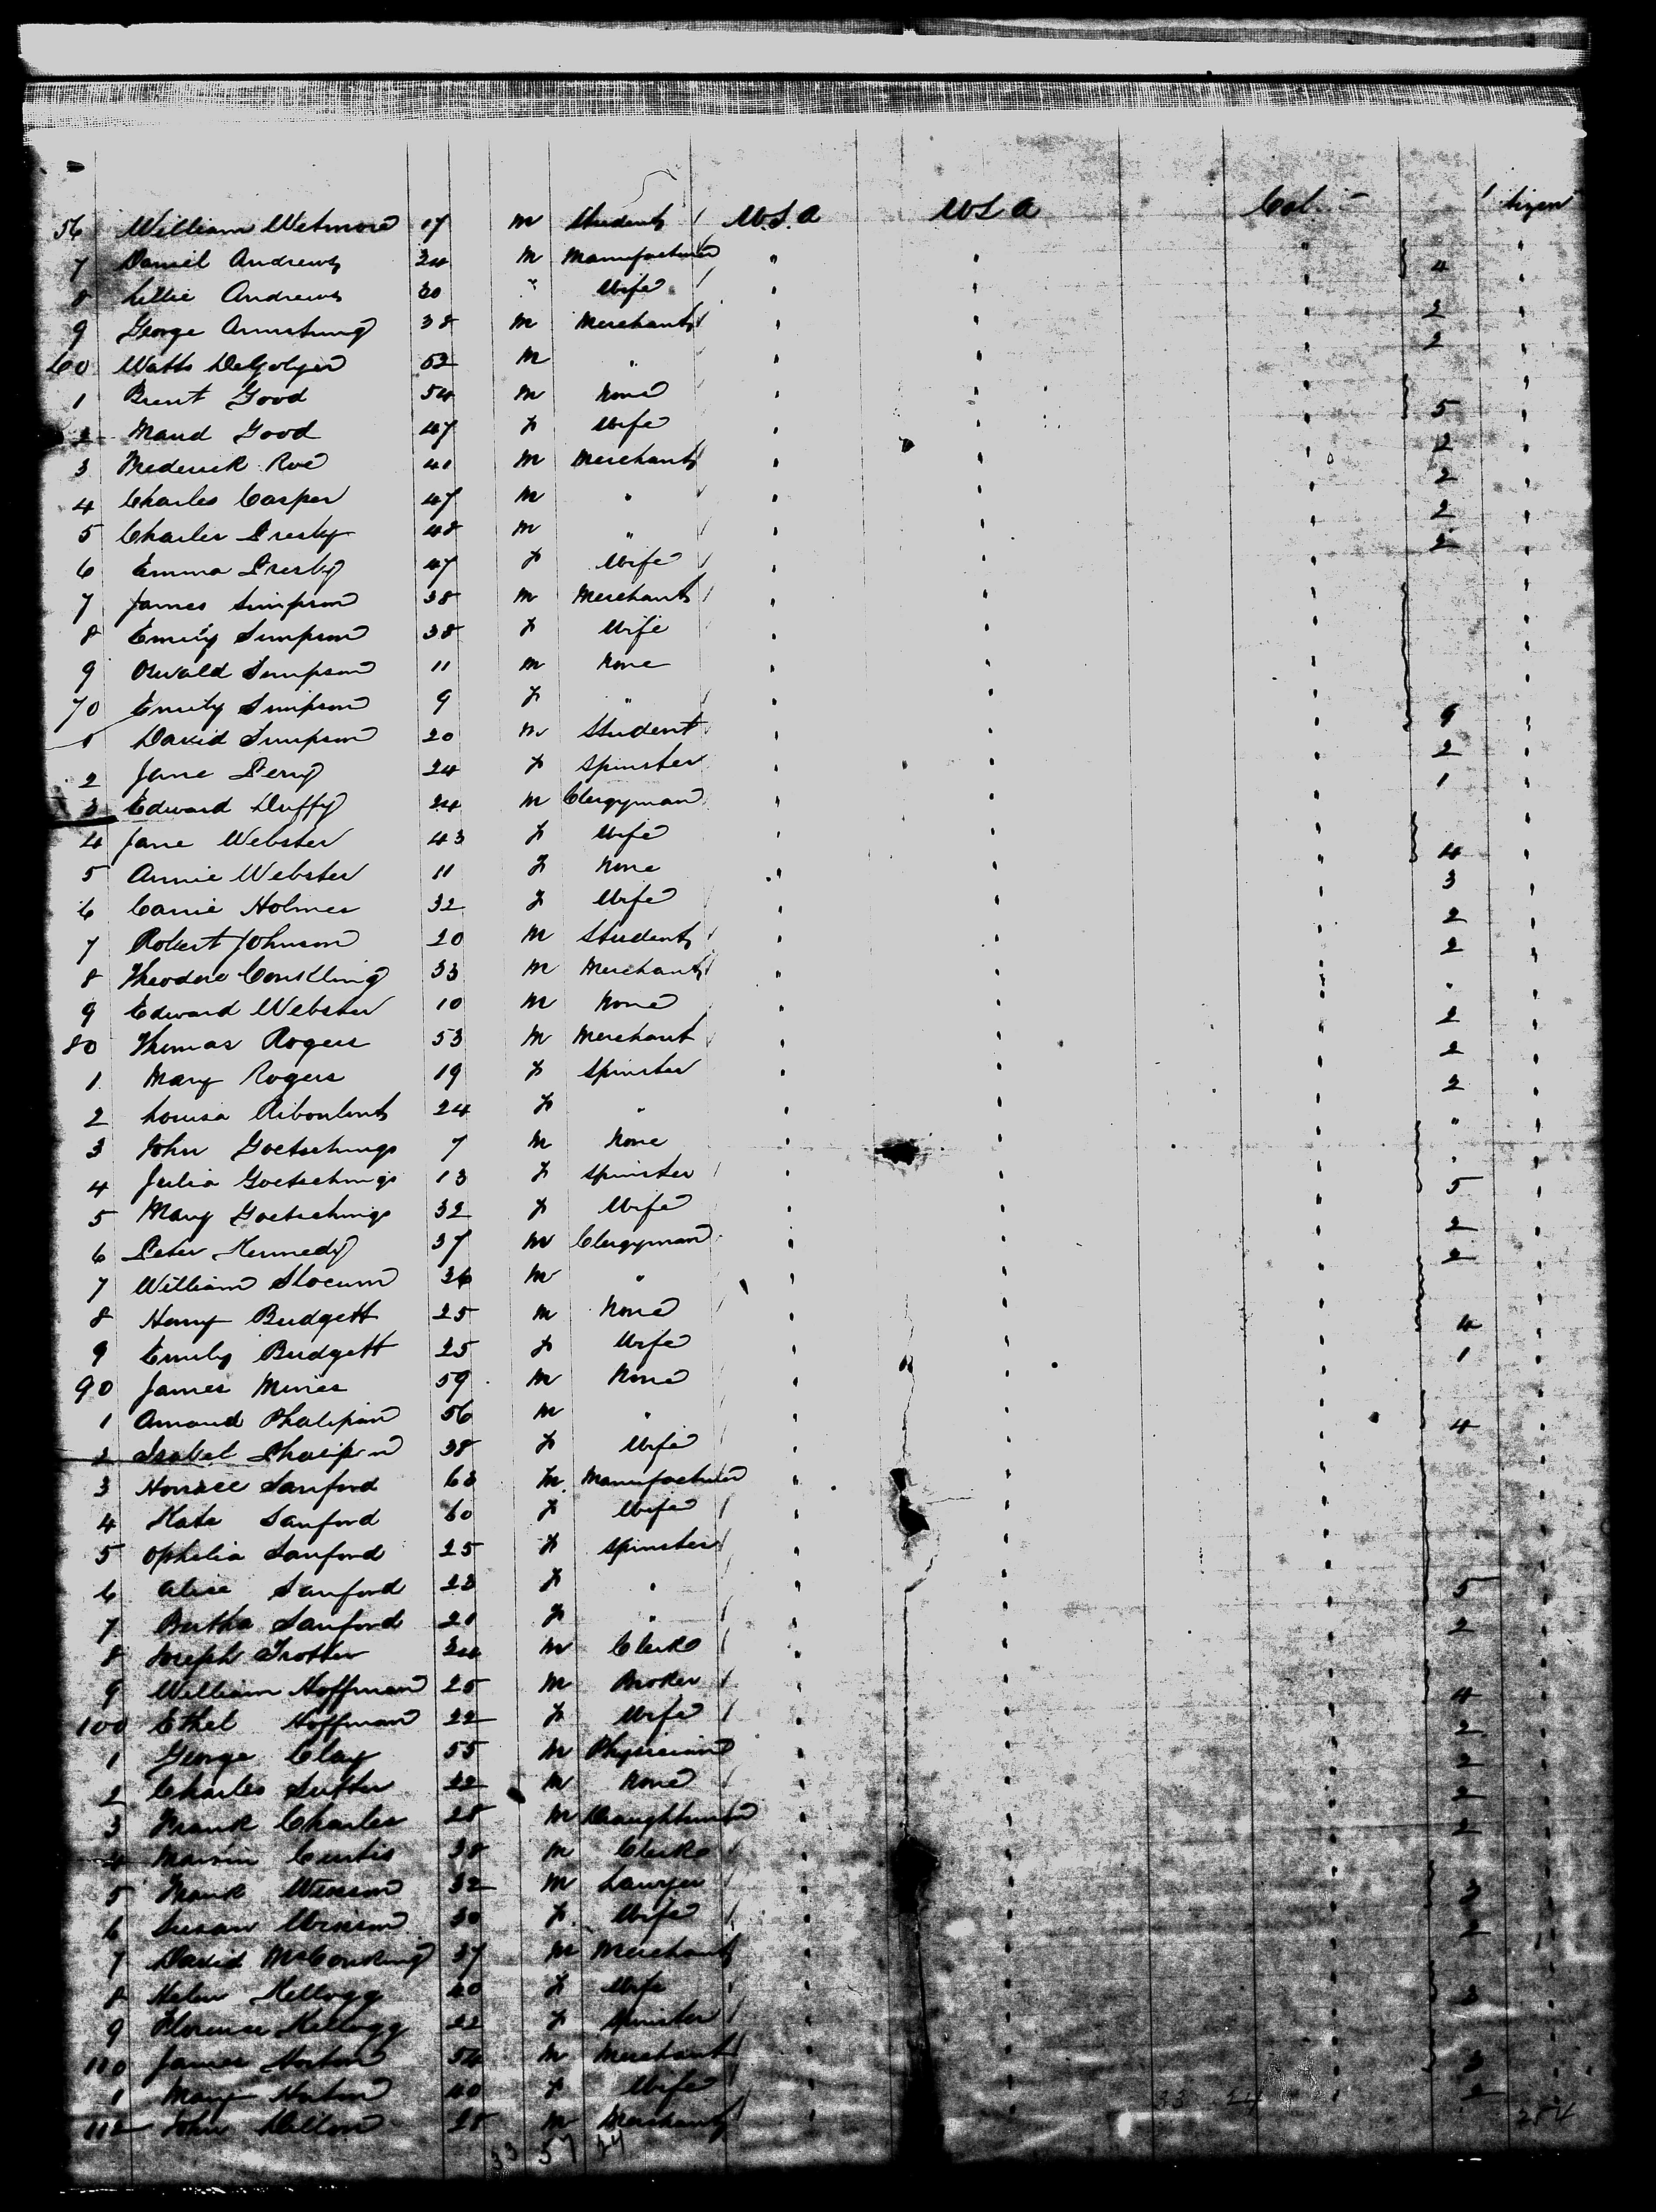 56 William Wetmore 17 m Student U.S.A U S A Cab. Citizen
7 Daniel Andrews 34 m Manufacturer " " " "
8 Lillie Andrews 30 " Wife " " " 4 "
9 George Armstrong 38 m Merchant " " " 2 "
60 Watts DeGolyer 52 m " " " " 2 "
1 Brent Good 54 m None " " " "
2 Maud Good 47 f Wife " " " 5 "
3 Frederick Roe 41 m Merchant " " " 2 "
4 Charles Casper 47 m " " " " 2 "
5 Charles Presby 48 m " " " " 2 "
6 Emma Presby 47 f Wife " " " 2 "
7 James Simpson 38 m Merchant " " " "
8 Emily Simpson 38 f Wife " " " "
9 Oswald Simpson 11 m None " " " "
70 Emily Simpson 9 f " " " " "
1 David Simpson 20 m Student " " " 9 "
2 Jane Perry 24 f Spinster " " " 2 "
3 Edward Duffy 24 m Clergyman " " " 1 "
4 Jane Webster 43 f Wife " " " "
5 Annie Webster 11 f None " " " 4 "
6 Carrie Holmes 32 f Wife " " " 3 "
7 Robert Johnson 20 m Student " " " 2 "
8 Theodore Conkling 33 m Merchant " " " 2 "
9 Edward Webster 10 m None " " " " "
80 Thomas Rogers 53 m Merchant " " " 2 "
1 Mary Rogers 19 f Spinster " " " 2 "
2 Louisa 24 f " " " " 2 "
3 John Goetschings 7 m None " " " " "
4 Julia Goetschings 13 f Spinster " " " " "
5 Mary Goetschings 32 f Wife " " " 5 "
6 Peter Kennedy 37 m Clergyman " " " 2 "
7 William Slocum 36 m " " " " 2 "
8 Harry Budgett 25 m None " " " "
9 Emily Budgett 25 f Wife " " " 4 "
90 James Mines 59 m None " " " 1 "
1 Amand Phalipan 56 m " " " " "
2 Isabel Phalipan 38 f Wife " " " 4 "
3 Horace Sanford 63 m Manufacturer " " " "
4 Kate Sanford 60 f Wife " " " "
5 Ophelia Sanford 25 f Spinster " " " "
6 Alice Sanford 23 f " " " " "
7 Bertha Sanford 21 f " " " " 5 "
8 Joseph Trotter 34 m Clerk " " " 2 "
9 William Hoffman 25 m Broker " " " "
100 Ethel Hoffman 22 f Wife " " " 4 "
1 George Clay 55 m Physician " " " 2 "
2 Charles 22 m None " " " 2 "
3 Frank Charles 28 m Draughtsman " " " 2 "
4 Marvin Curtis 38 m Clerk " " " 2 "
5 Frank 32 m Lawyer " " " "
6 Susan 30 f Wife " " " 3 "
7 David McConking 37 m Merchant " " " 2 "
8 Helen Kellogg 40 f Wife " " " "
9 Florence Kellogg 22 f Spinster " " " 3 "
110 James Norton 54 m Merchant " " " "
1 Mary Norton 40 f Wife " " " 3 "
112 John Milton 28 m Merchant " " " 2 "
33 24 254
33 57 24